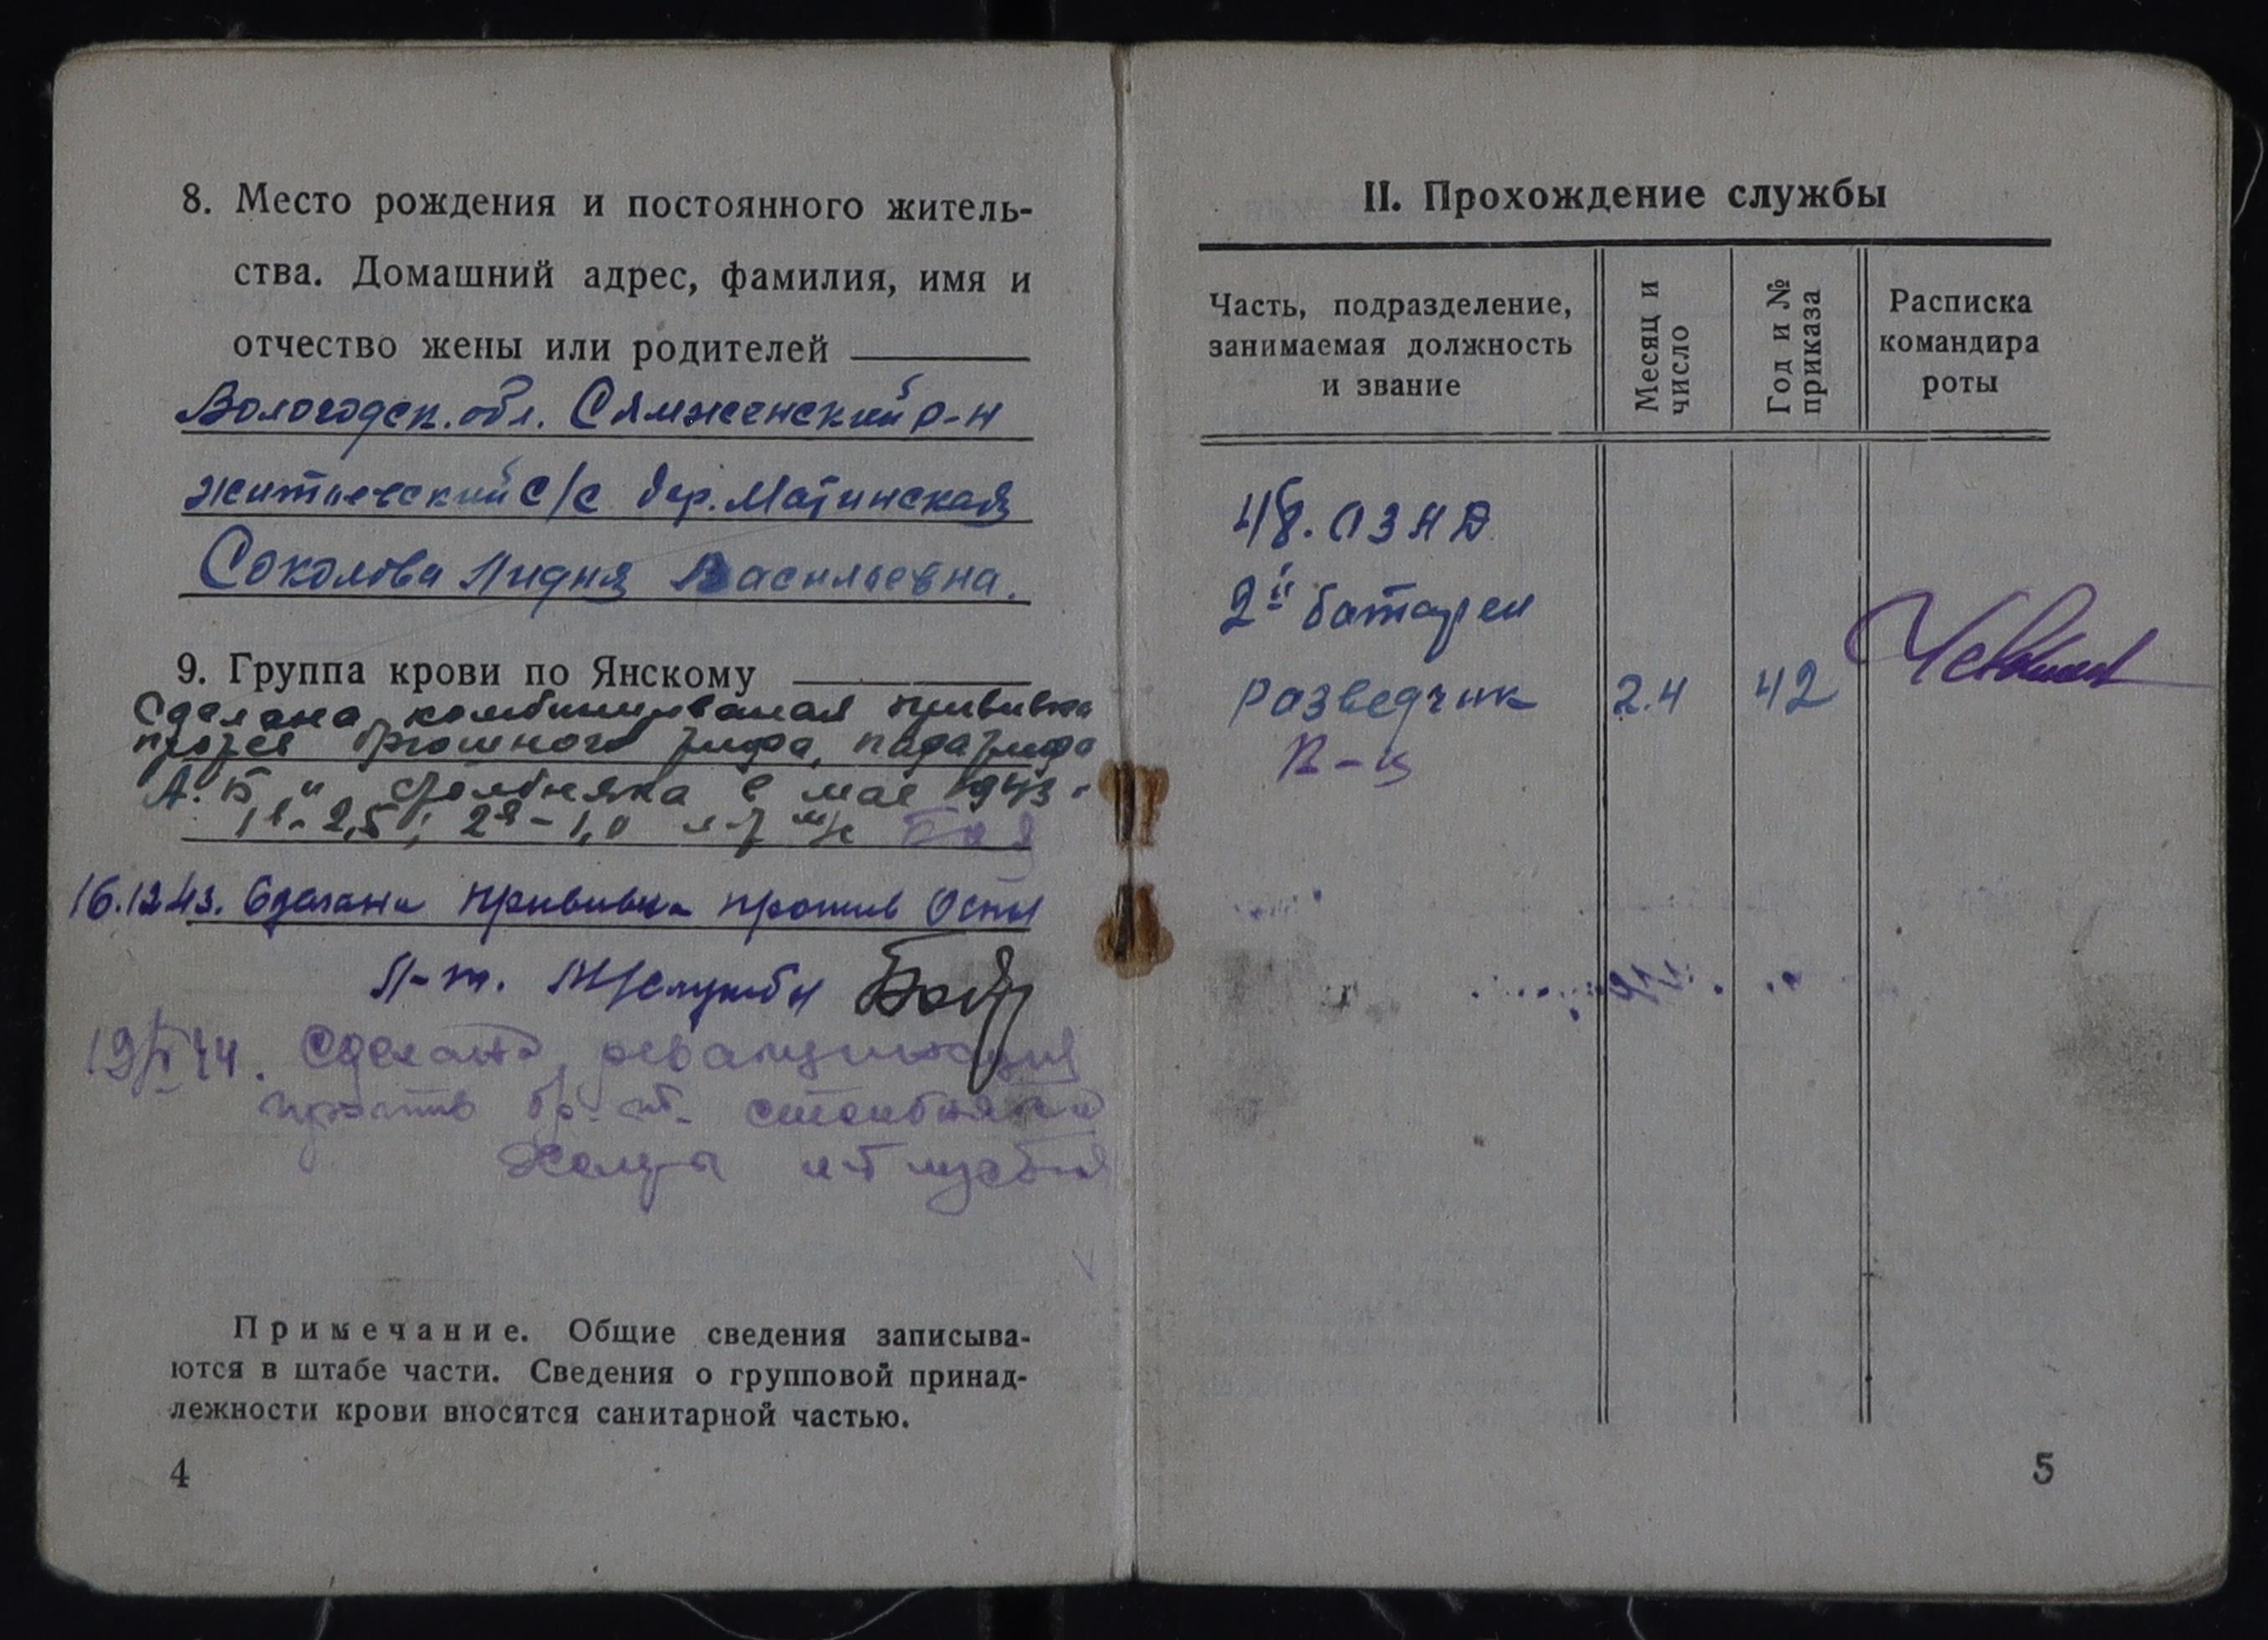 8. Место рождения и постоянного житель-
ства. Домашний адрес, фамилия, имя и
отчество жены или родителей
Вологодск. обл. Сямженский р-н
житьевский с/с дер. Матинская
Соколова Лидия Васильевна.
9. Группа крови по Янскому
Сделана комбинированая прививка
против брюшного тифа, паратифа
А. Б и столбняка в мае 1943.
16.12.43. Сделана прививка против Оспы
Л-т. М/службы
19/V 44. Сделана ревакцинация
против бр. т. столбняка
л-т м/службы
Примечание. Общие сведения записыва-
ются в штабе части. Сведения о групповой принад-
лежности крови вносятся санитарной частью.
4
II. Прохождение службы
Часть, подразделение,
занимаемая должность
и звание
Месяц и
число
Год и №
приказа
Расписка
командира
роты
48. ОЗАД
2й батареи
разведчик 2.4 42
5